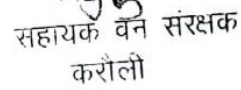 सहायक वन संरक्षक
करौली